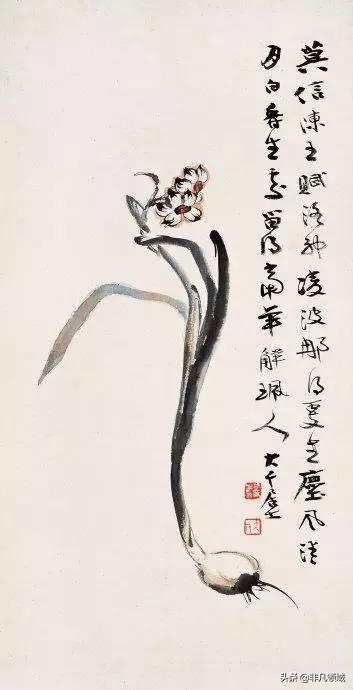 莫信陳王賦洛神凌波那得更生塵風清
月白香生處留得當年解珮人 大千居士
头条 @非凡领域